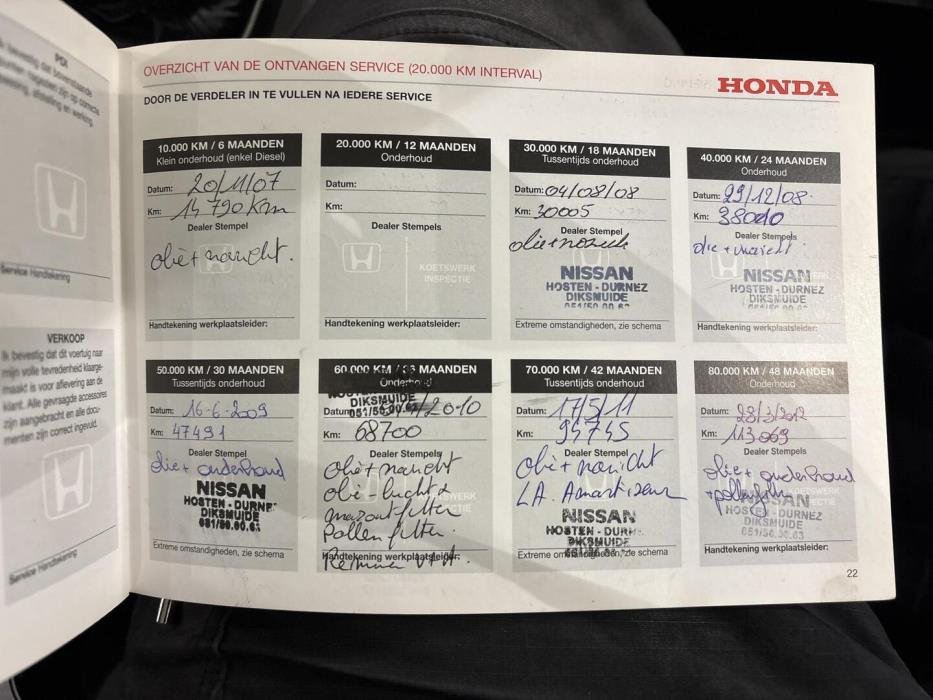 OVERZICHT VAN DE ONTVANGEN SERVICE (20.000 KM INTERVAL)
HONDA
DOOR DE VERDELER IN TE VULLEN NA IEDERE SERVICE
10.000 KM / 6 MAANDEN
Klein onderhoud (enkel Diesel)
Datum: 20/11/07
Km: 14 790 Km
Dealer Stempel
olie + naricht.
Handtekening werkplaatsleider:
20.000 KM / 12 MAANDEN
Onderhoud
Datum:
Km:
Dealer Stempels
KOETSWERK
INSPECTIE
Handtekening werkplaatsleider:
30.000 KM / 18 MAANDEN
Tussentijds onderhoud
Datum: 04/08/08
Km: 30005
Dealer Stempel
olie +
NISSAN
HOSTEN - DURNEZ
DIKSMUIDE
Extreme omstandigheden, zie schema
40.000 KM / 24 MAANDEN
Onderhoud
Datum: 29/12/08
Km: 38010
Dealer Stempels
olie +
NISSAN
HOSTEN - DURNEZ
DIKSMUIDE
Handtekening werkplaatsleider:
50.000 KM / 30 MAANDEN
Tussentijds onderhoud
Datum: 16-6-2009
Km: 47491
Dealer Stempel
olie + onderhoud
NISSAN
HOSTEN - DURNE
DIKSMUIDE
Extreme omstandigheden, zie schema
60.000 KM / 36 MAANDEN
Onderhoud
DIKSMUIDE
Datum: /2010
Km: 68700
Dealer Stempels
olie + naricht
olie - lucht +
mazout filter
Pollen filter
Handtekening werkplaatsleider:
70.000 KM / 42 MAANDEN
Tussentijds onderhoud
Datum: 17/5/11
Km: 94745
Dealer Stempel
olie + naricht
LA. Amortiseur
NISSAN
HOSTEN - DURNE
DIKSMUIDE
Extreme omstandigheden, zie schema
80.000 KM / 48 MAANDEN
Onderhoud
Datum: 28/3/2012
Km: 113069
Dealer Stempels
olie + onderhoud
+ pollenfilter
NISSAN
HOSTEN - DURNEZ
DIKSMUIDE
051/50.00.63
Handtekening werkplaatsleider:
22
PDI
Service Handtekening
VERKOOP
Ik bevestig dat dit voertuig naar
mijn volle tevredenheid klaarge-
maakt is voor aflevering aan de
klant. Alle gevraagde accessoires
zijn aangebracht en alle docu-
menten zijn correct ingevuld.
Service Handtekening